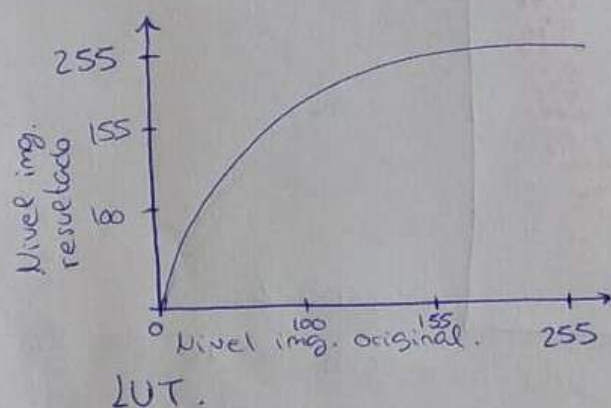 255
155
100
Nivel img.
resultado
0
100
155
255
Nivel img. original.
LUT.